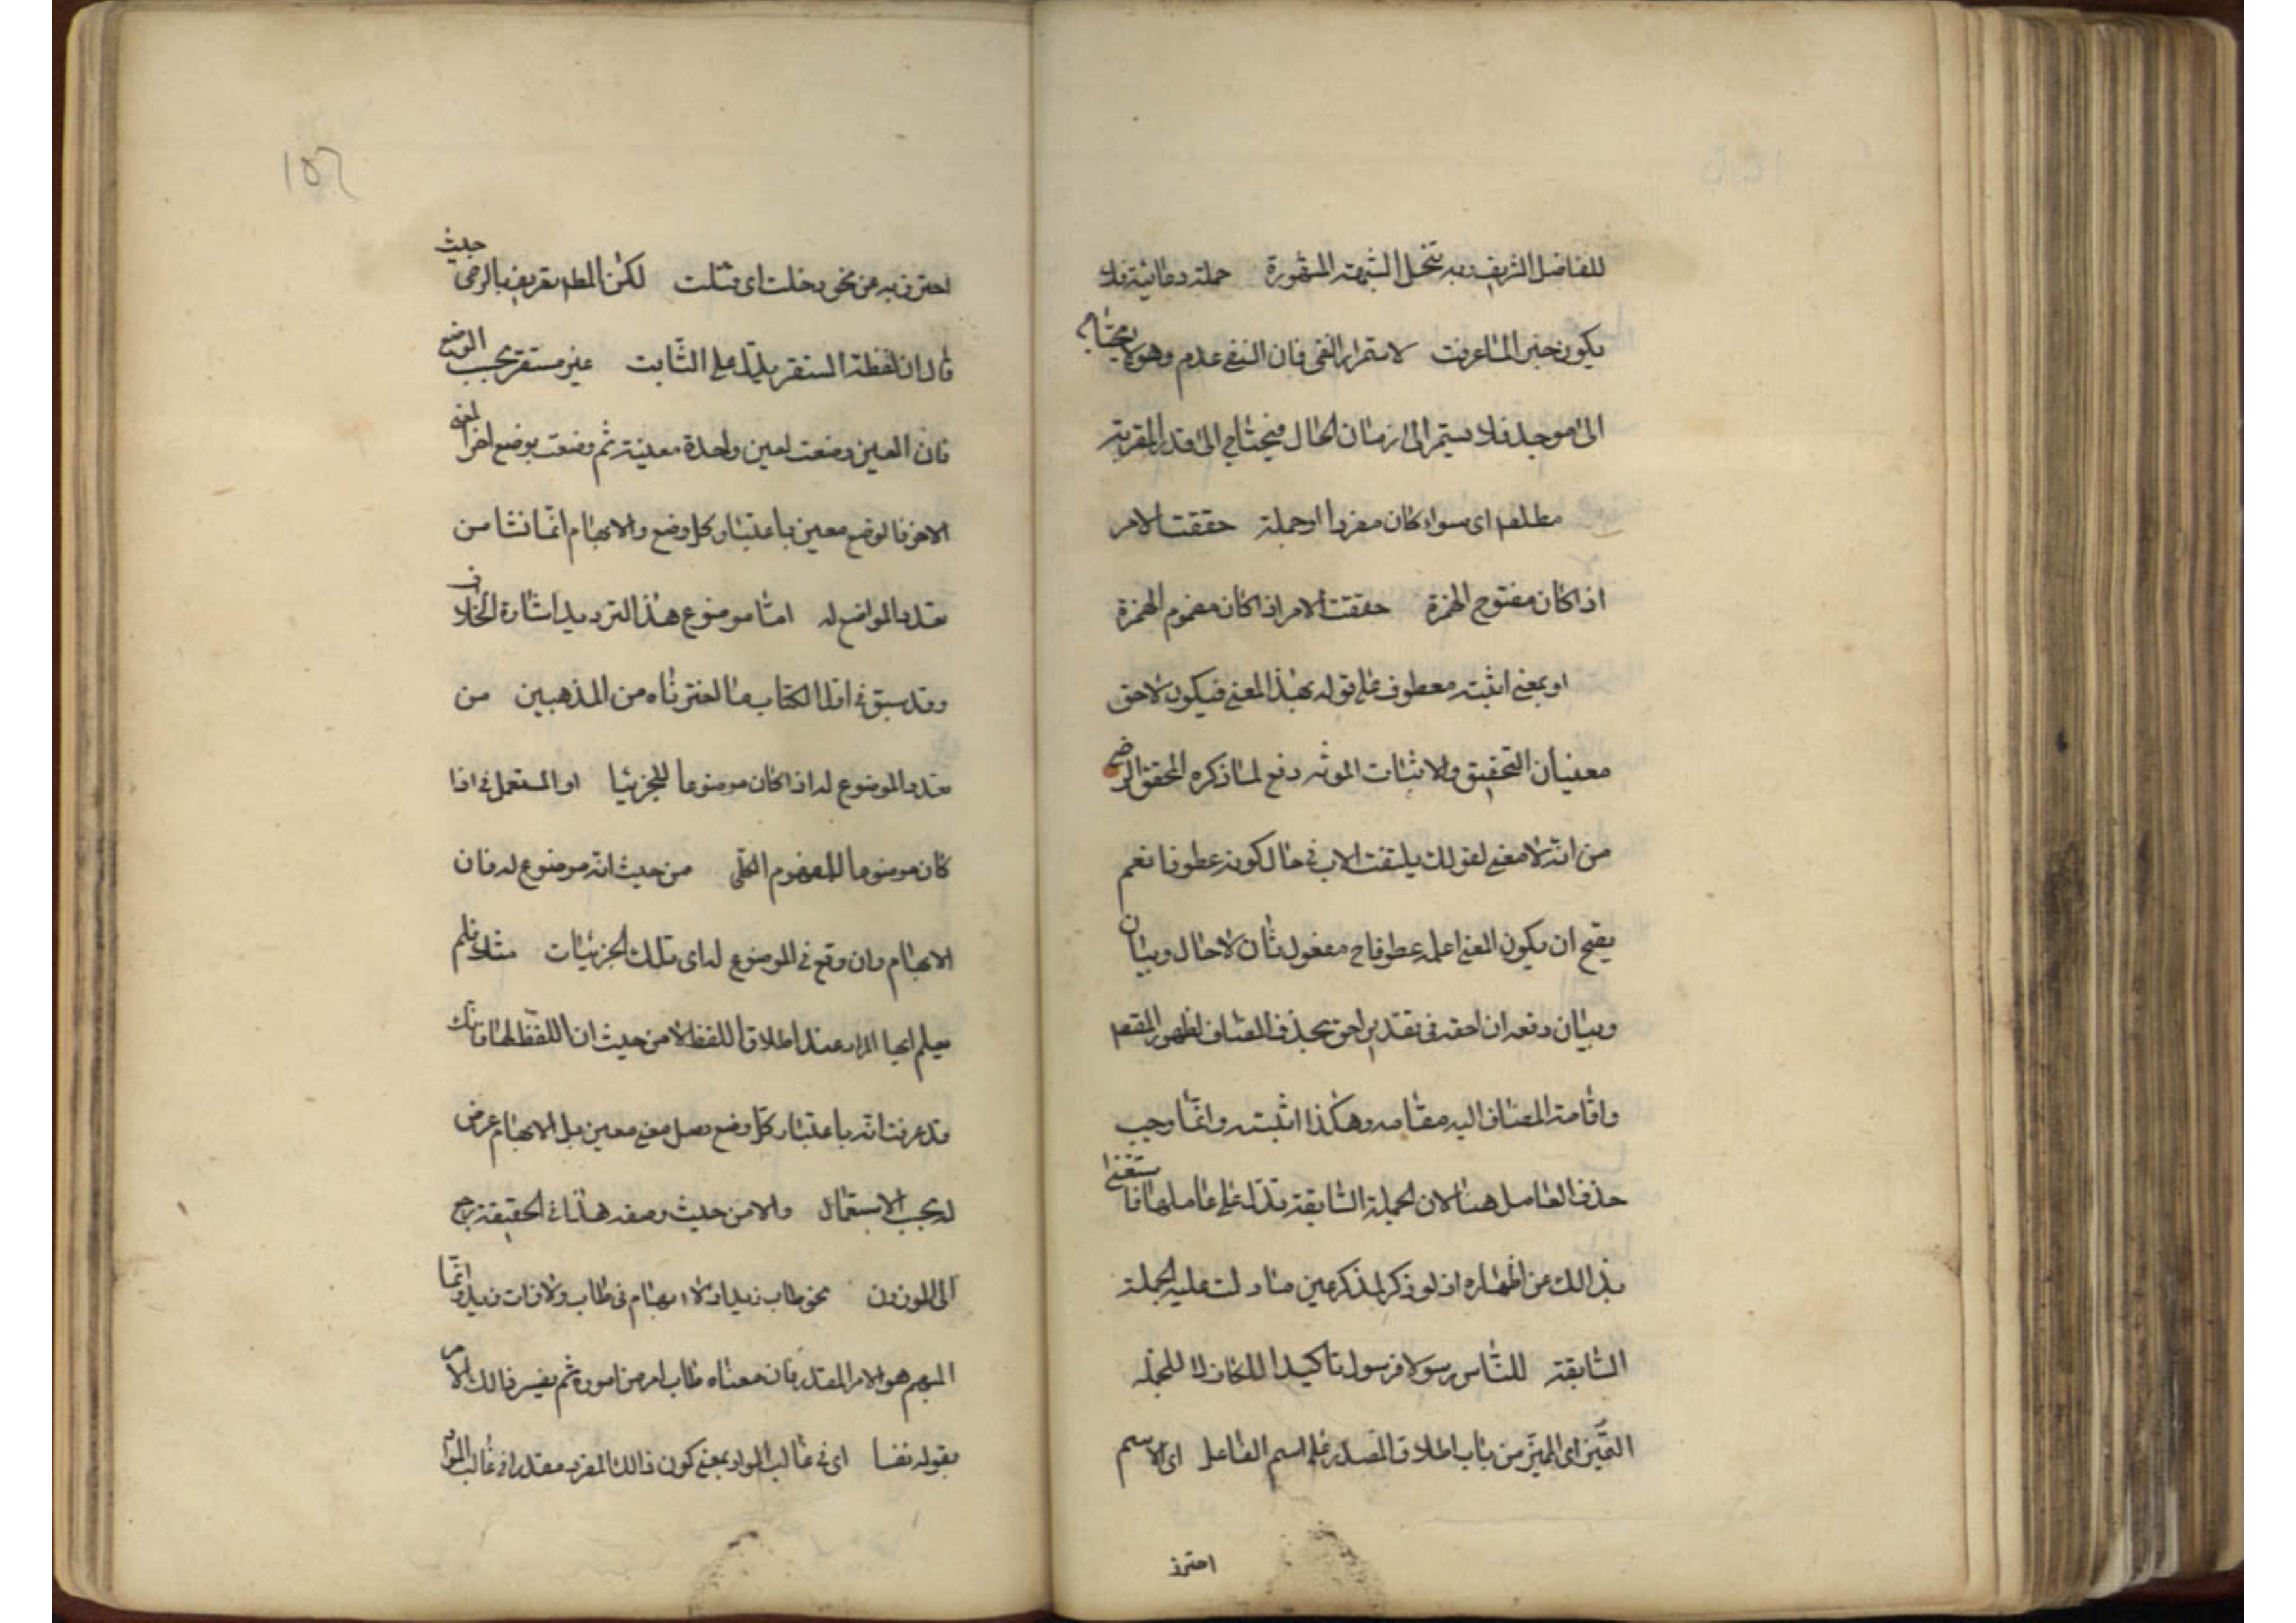 للفاضل الشريف وبه تنحل الشبهة المشهورة جملة دعائية فلا
يكون خبر لما عرفت لاستمرار النفي فان النفي عدم وهو لا يحتاج
الى موجد فلا يستمر الى ازمان الحال فيحتاج الى قد المقربة
مطلقا اى سواء كان مفردا او جملة حققت الامر
اذا كان مفتوح الهمزة حققت الامر اذا كان مضموم الهمزة
او بمعنى اثبته معطوف على قوله بهذا المعنى فيكون لاحق
معنيان التحقيق والاثبات الموثه دفع لما ذكره المحقق الرضى
من انه لا معنى لقولك يلتفت الاب فى حال كونه عطوفا نعم
يصح ان يكون المعنى اعلمه عطوفا ح مفعول ثان لا حال وبيان
وبيان دفعه ان احقه فى تقدير احق بحذف المضاف لظهور المقصم
واقامة المضاف اليه مقامه وهكذا اثبته وانما وجب
حذف العامل هنا لان الجملة السابقة تدل على عاملها فاستغنى
بذالك عن اظهاره اذ لو ذكر لذكر عين ما دلت عليه الجملة
السابقة للناس رسولا فرسولا تاكيدا للكاف لا للجملة
التميز اى المميز من باب اطلاق المصدر على اسم الفاعل اى الاسم
احترز
١٥٢
احترز به عن نحو دخلت اى قتلت لكن المط تعريف بالرضى حيث
قال ان لفظة المستقر يدل على الثابت غير مستقر بحسب الوضع
فان العين وضعت لعين واحدة معينة ثم وضعت بوضع اخر لمعنى
الاخر فالوضع معين باعتبار كل وضع والابهام انما نشا من
تعدد المواضع له اما موضوع هذا الترديد اشارة الخلاف
وقد سبق فى اول الكتاب ما اخترناه من المذهبين من
تعدد الموضوع له اذا كان موضوعا للجزئيا او المستعمل فى اذا
كان موضوعا للمفهوم الكلى من حيث انه موضوع له فان
الابهام وان وقع فى الموضوع له اى تلك الجزئيات مثلا فلم
يعلم ايها المراد عند اطلاق اللفظ لا من حيث ان اللفظ لها فانك
قد عرفت انه باعتبار كل وضع يصل معنى معين بل الابهام عرض
له بحسب الاستعمال والا من حيث وصفه هذا فى الحقيقة يرجع
الى الموزون نحو طاب زيد اذ لا ابهام فى طاب ولا فات زيد وانما
المبهم هو الامر المقدر فان معناه طاب امر من اموره ثم يفسر ذالك الامر
بقوله نفسا اى فى غالب المواد بمعنى كون ذالك المفرد مقدرا فى غالب المواد